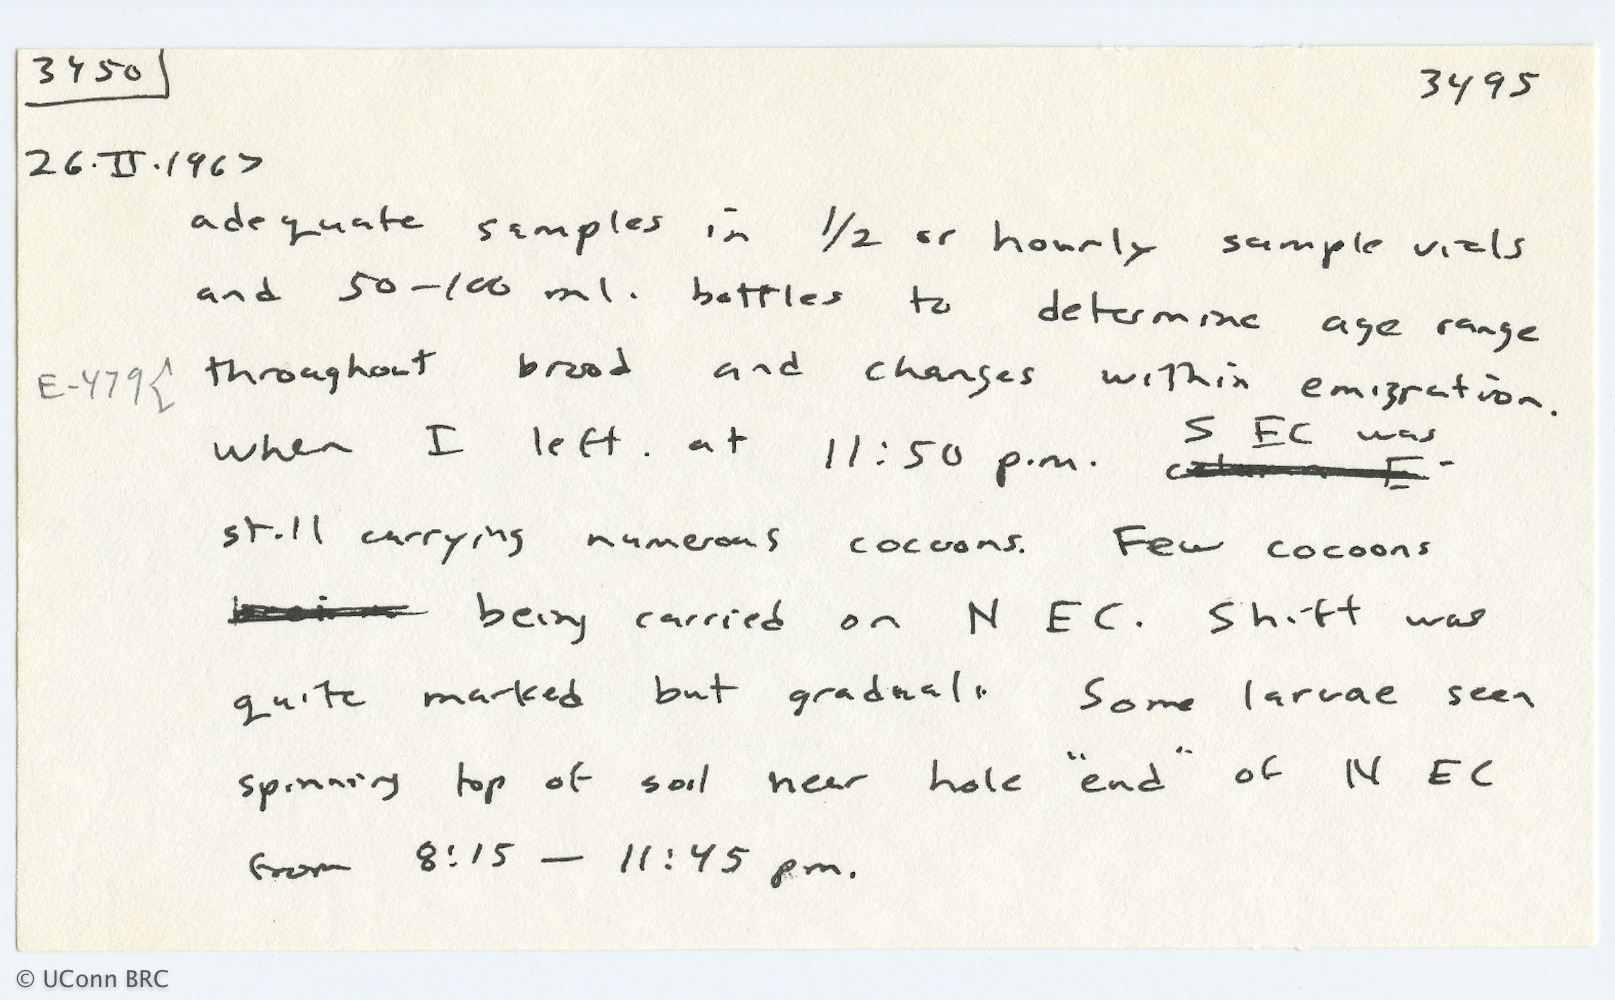 3450 3495
26.II.1967
adequate samples in 1/2 or hourly sample vials
and 50-100 ml. bottles to determine age range
E-479{ throughout brood and changes within emigration.
When I left. at 11:50 p.m. S EC was
still carrying numerous cocoons. Few cocoons
being carried on N EC. Shift was
quite marked but gradual. Some larvae seen
spinning top of soil near hole "end" of N EC
from 8:15 - 11:45 pm.
© UConn BRC